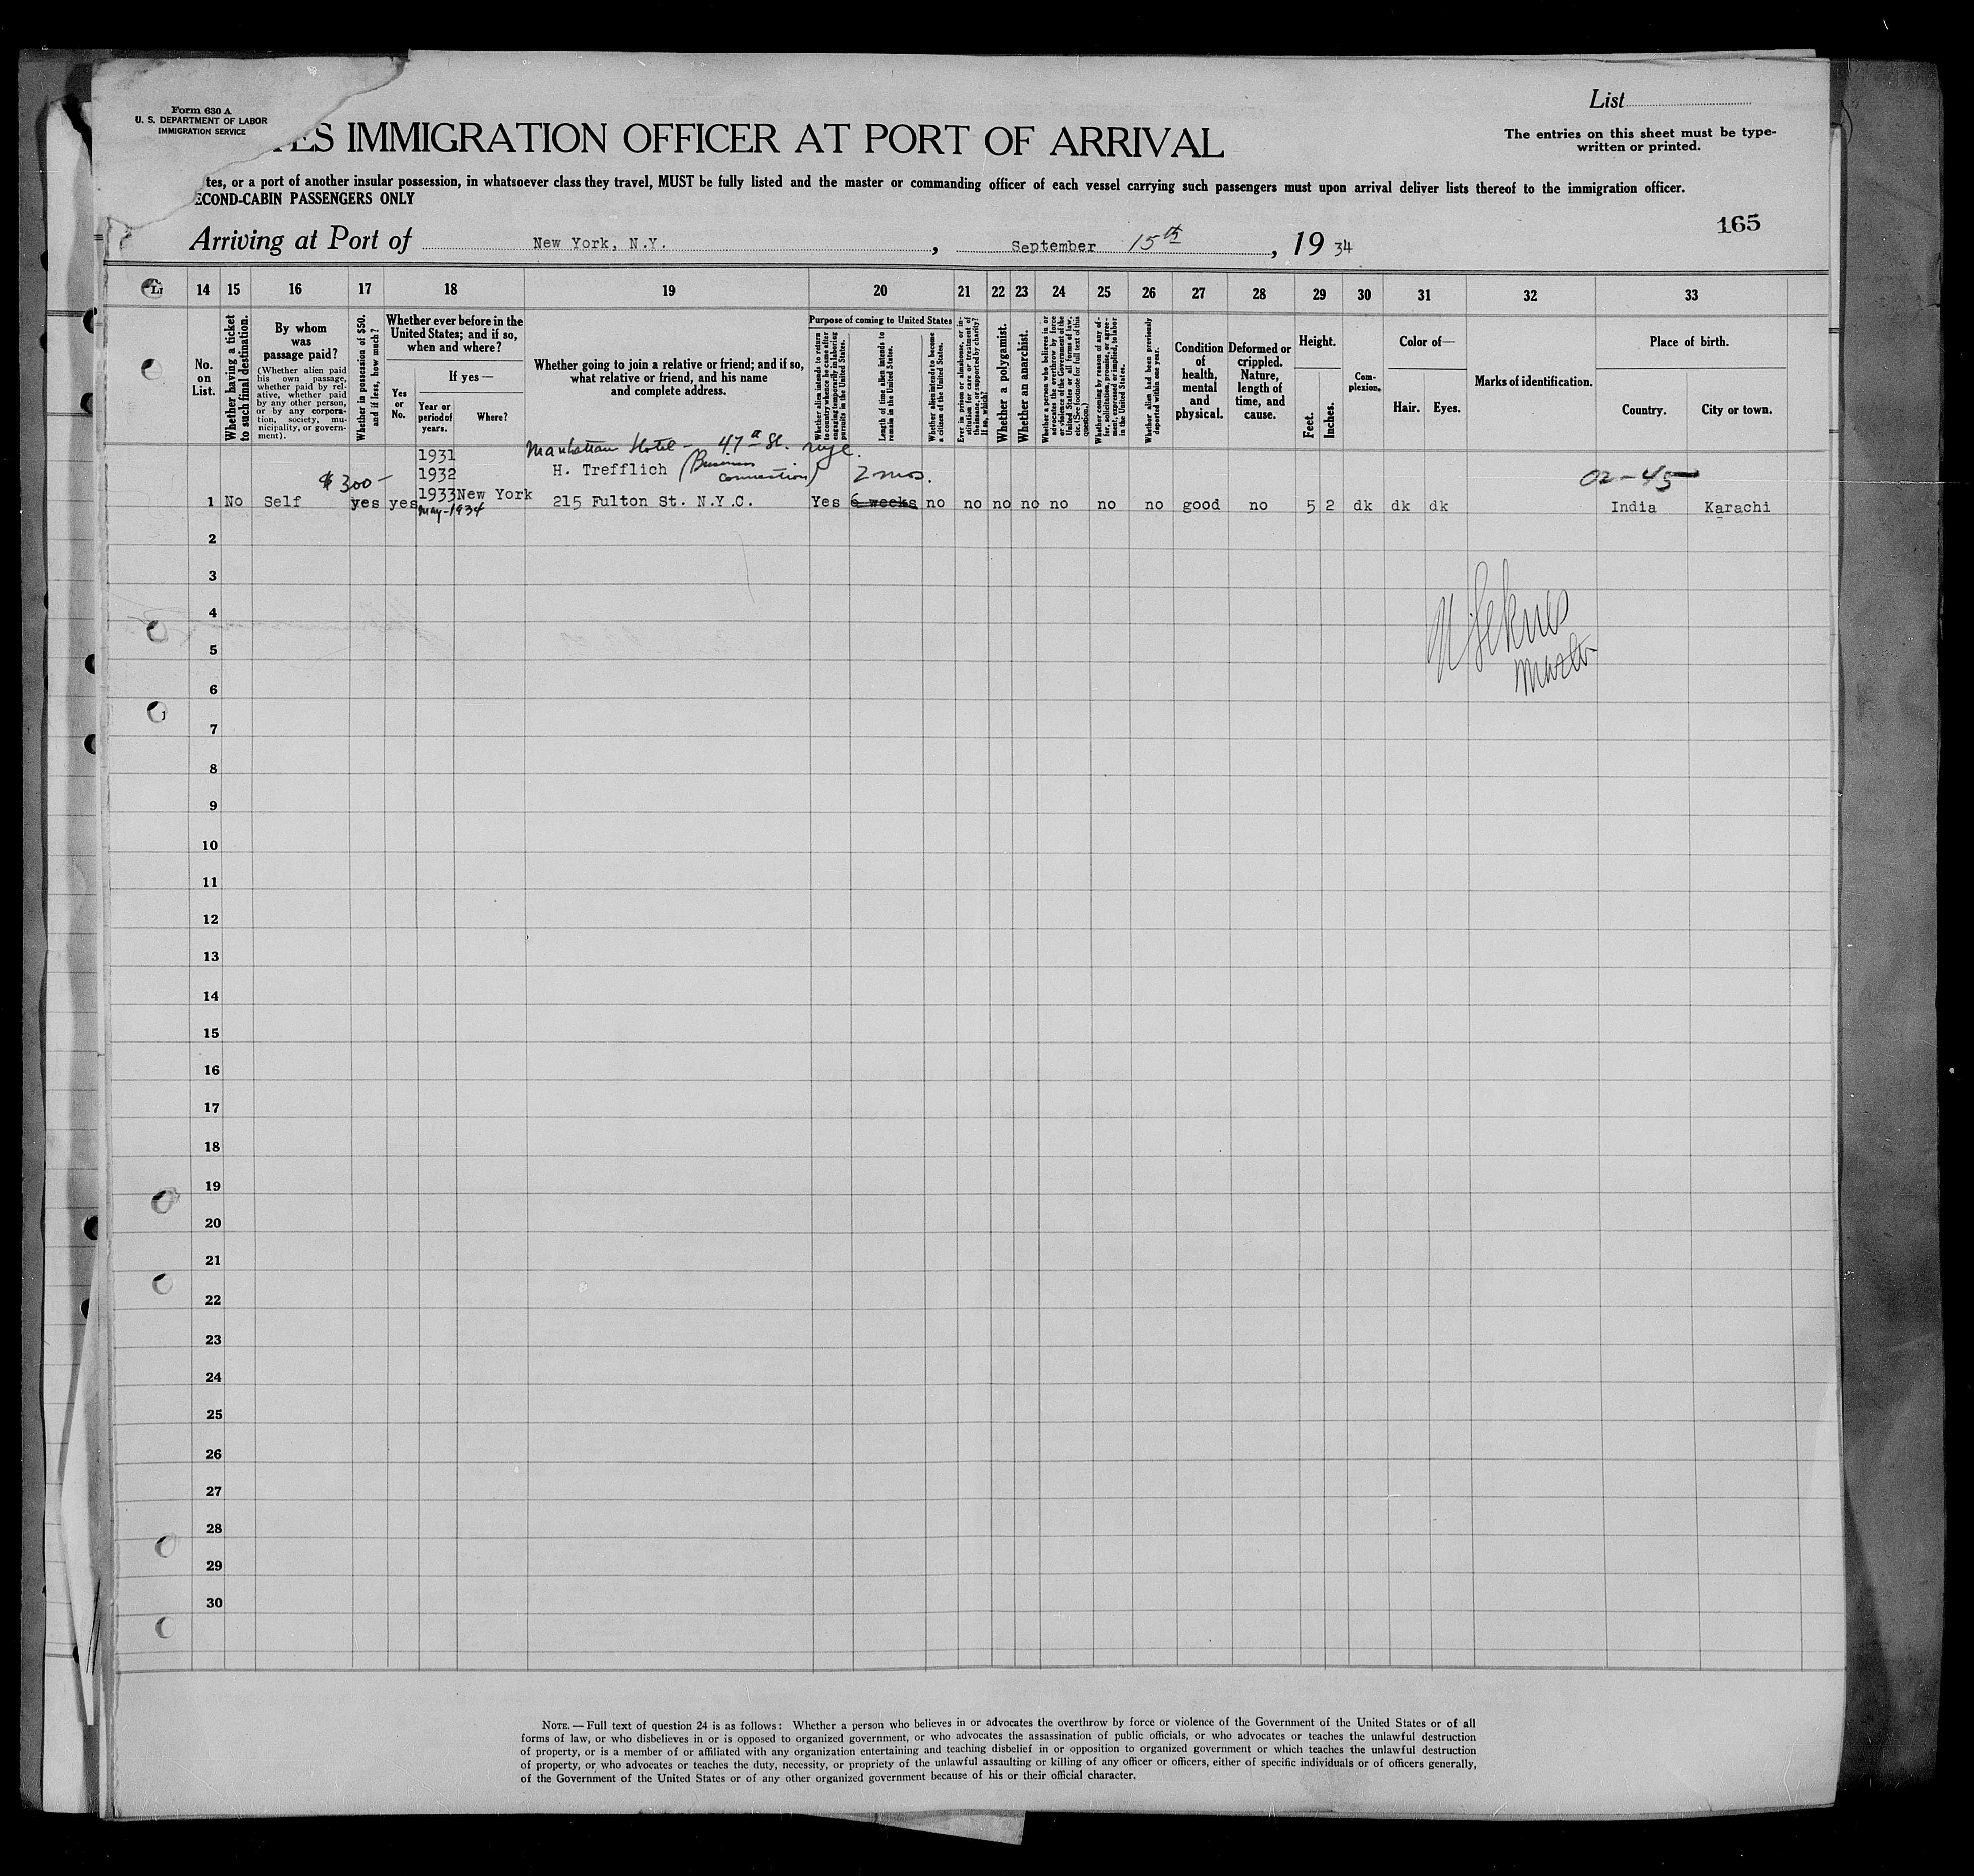 Form 630 A
U. S. DEPARTMENT OF LABOR
IMMIGRATION SERVICE
TES IMMIGRATION OFFICER AT PORT OF ARRIVAL
List
The entries on this sheet must be type-
written or printed.
tes, or a port of another insular possession, in whatsoever class they travel, MUST be fully listed and the master or commanding officer of each vessel carrying such passengers must upon arrival deliver lists thereof to the immigration officer.
ECOND-CABIN PASSENGERS ONLY
165
Arriving at Port of New York, N.Y., September 15th, 1934
14 15 16 17 18 19 20 21 22 23 24 25 26 27 28 29 30 31 32 33
No. on List.
Whether having a ticket to such final destination.
By whom was passage paid?
(Whether alien paid his own passage, whether paid by relative, whether paid by any other person, or by any corporation, society, municipality, or government).
Whether in possession of $50, and if less, how much?
Whether ever before in the United States; and if so, when and where?
If yes—
Yes or No.
Year or period of years.
Where?
Whether going to join a relative or friend; and if so, what relative or friend, and his name and complete address.
Purpose of coming to United States
Whether alien intends to return to country whence he came after engaging temporarily in laboring pursuits in the United States.
Length of time alien intends to remain in the United States.
Whether alien intends to become a citizen of the United States.
Ever in prison or almshouse, or institution for care or treatment of the insane, or supported by charity? If so, which?
Whether a polygamist.
Whether an anarchist.
Whether a person who believes in or advocates the overthrow by force or violence of the Government of the United States or all forms of law, etc. (See footnote for full text of this question.)
Whether coming by reason of any offer, solicitation, promise, or agreement, expressed or implied, to labor in the United States.
Whether alien had been previously deported within one year.
Condition of health, mental and physical.
Deformed or crippled. Nature, length of time, and cause.
Height.
Feet. Inches.
Complexion.
Color of—
Hair. Eyes.
Marks of identification.
Place of birth.
Country. City or town.
Manhattan Hotel – 47th St. nyc.
1931
1932 H. Trefflich (Business connection) 2 mos.
$300- 02-45
1 No Self yes yes 1933 New York 215 Fulton St. N.Y.C. Yes 6 weeks no no no no no no no good no 5 2 dk dk dk India Karachi
May-1934
2
3
4
5
Master
6
7
8
9
10
11
12
13
14
15
16
17
18
19
20
21
22
23
24
25
26
27
28
29
30
NOTE.—Full text of question 24 is as follows: Whether a person who believes in or advocates the overthrow by force or violence of the Government of the United States or of all
forms of law, or who disbelieves in or is opposed to organized government, or who advocates the assassination of public officials, or who advocates or teaches the unlawful destruction
of property, or is a member of or affiliated with any organization entertaining and teaching disbelief in or opposition to organized government or which teaches the unlawful destruction
of property, or who advocates or teaches the duty, necessity, or propriety of the unlawful assaulting or killing of any officer or officers, either of specific individuals or of officers generally,
of the Government of the United States or of any other organized government because of his or their official character.